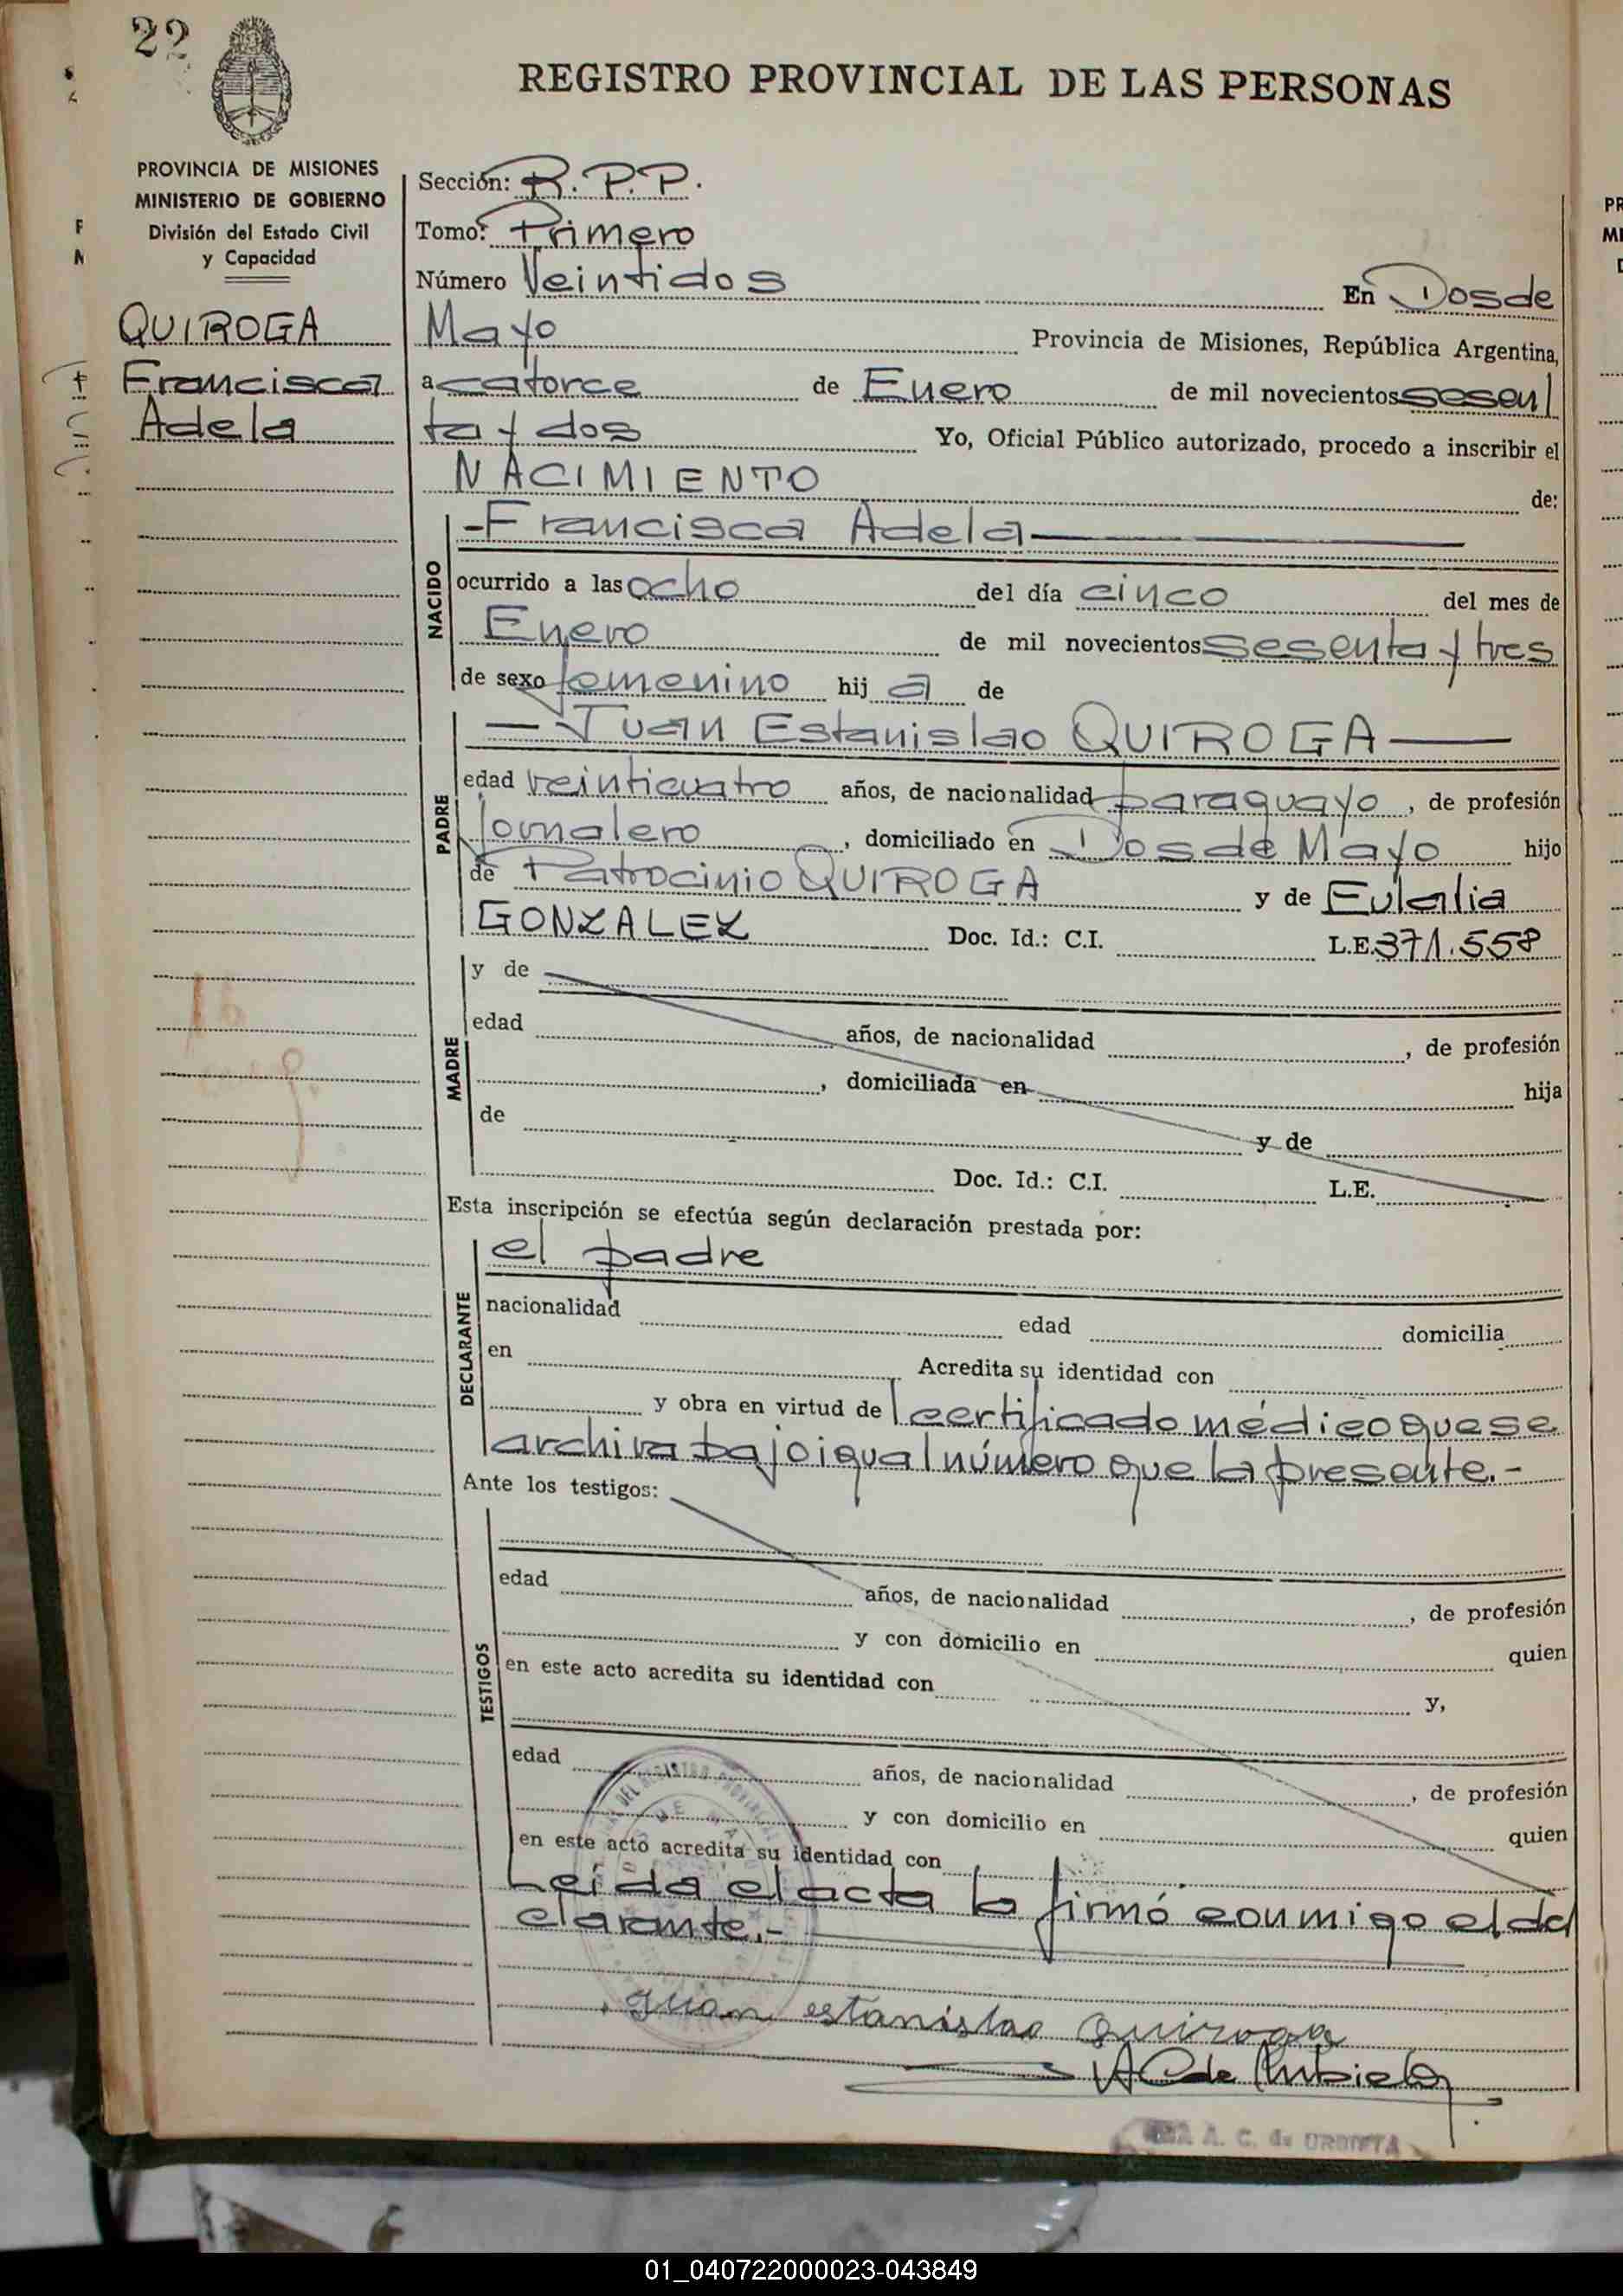 22
REGISTRO PROVINCIAL DE LAS PERSONAS
PROVINCIA DE MISIONES
MINISTERIO DE GOBIERNO
División del Estado Civil
y Capacidad
QUIROGA
Francisca
Adela
Sección: R.P.P.
Tomo: Primero
Número Veintidos En Dos de
Mayo Provincia de Misiones, República Argentina,
a catorce de Enero de mil novecientos sesen
ta y dos Yo, Oficial Público autorizado, procedo a inscribir el
NACIMIENTO de:
NACIDO
-Francisca Adela
ocurrido a las ocho del día cinco del mes de
Enero de mil novecientos sesenta y tres
de sexo femenino hij a de
PADRE
— Juan Estanislao QUIROGA —
edad veinticuatro años, de nacionalidad paraguayo, de profesión
Jornalero, domiciliado en Dos de Mayo hijo
de Patrocinio QUIROGA y de Eulalia
GONZALEZ Doc. Id.: C.I. L.E. 371.558
MADRE
y de
edad años, de nacionalidad , de profesión
, domiciliada en hija
de y de
Doc. Id.: C.I. L.E.
Esta inscripción se efectúa según declaración prestada por:
DECLARANTE
el padre
nacionalidad edad domicilia
en Acredita su identidad con
y obra en virtud de certificado médico que se
archiva bajo igual número que la presente.-
Ante los testigos:
TESTIGOS
edad años, de nacionalidad , de profesión
y con domicilio en quien
en este acto acredita su identidad con y,
edad años, de nacionalidad , de profesión
y con domicilio en quien
en este acto acredita su identidad con
Leída el acta la firmó conmigo el de
clarante.-
Juan estanislao Quiroga
A. C. de URBIETA
01_040722000023-043849